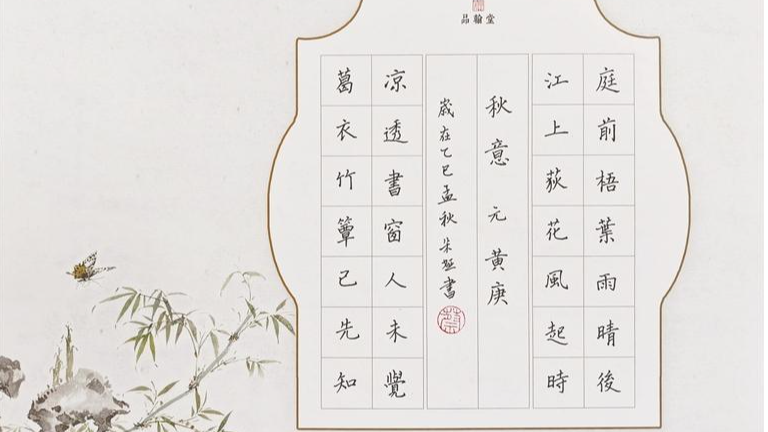 品翰堂
庭前梧葉雨晴後
江上荻花風起時
秋意 元 黄庚
歲在乙巳孟秋朱書
凉透書窗人未覺
葛衣竹簟已先知